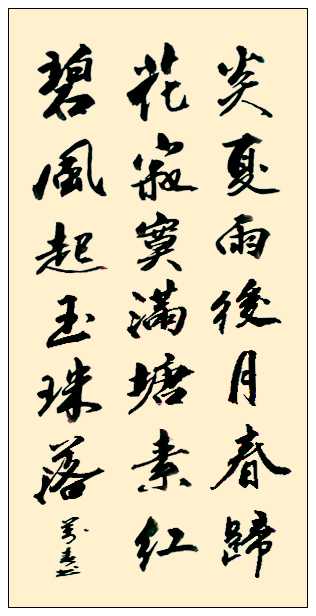 炎夏雨後月春歸
花寂寞滿塘素紅
碧風起玉珠落